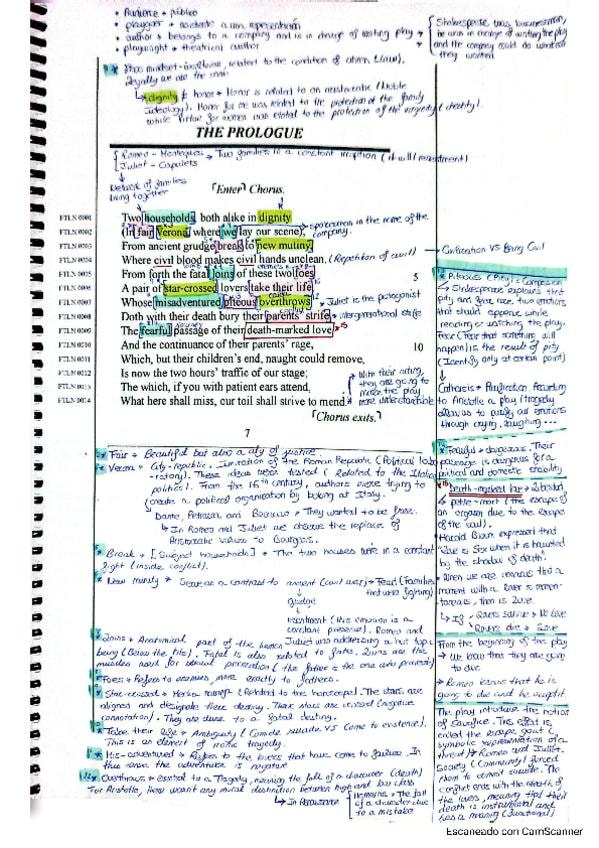 • Audience → público
author → belongs to a company and is in charge of writing play
playwright → theatrical author
Shakespeare was businessman,
he was in charge of writing the play
and the company could do whatever
they wanted
legally we are the same
dignity & honor → Honor is related to an aristocratic (Noble
ideology). Honor for me was related to the protection of the family
while virtue for women was related to the protection of the virginity (chastity).
THE PROLOGUE
Romeo - Montagues → Two families in a constant
Juliet - Capulets
Network of families
living together
⌈Enter⌉ Chorus.
FTLN 0001 Two households, both alike in dignity
FTLN 0002 (In fair Verona, where we lay our scene),
→ spokesman in the name of the
company.
FTLN 0003 From ancient grudge break to new mutiny,
FTLN 0004 Where civil blood makes civil hands unclean. (Repetition of civil)
→ Civilization VS Being Civil
FTLN 0005 From forth the fatal loins of these two foes 5
FTLN 0006 A pair of star-crossed lovers take their life;
FTLN 0007 Whose misadventured piteous overthrows
→ Juliet is the protagonist
FTLN 0008 Doth with their death bury their parents' strife.
FTLN 0009 The fearful passage of their death-marked love
FTLN 0010 And the continuance of their parents' rage, 10
FTLN 0011 Which, but their children's end, naught could remove,
FTLN 0012 Is now the two hours' traffic of our stage;
FTLN 0013 The which, if you with patient ears attend,
FTLN 0014 What here shall miss, our toil shall strive to mend.
→ With their acting,
they are going to
make the play
more understandable
⌈Chorus exits.⌉
7
Fair → Beautiful but also a city of justice
Verona → City-republic. Imitation of the Roman Republic (Political
These ideas were tested (Related to the Italian
politics). From the 16th century, authors were trying to
create a political organization by looking at Italy.
Dante, Petrarca and Boccaccio → They wanted to be free.
↳ In Romeo and Juliet we observe the replace of
Aristocratic values to Bourgois.
Break → [Subject households] → The two houses were in a constant
fight (inside conflict).
New mutiny → Serve as a contrast to ancient (civil wars) → Feud (Families
that were fighting)
grudge
Resentment (this emotion is a
constant presence). Romeo and
Loins → Anatomical part of the human
being (Below the hip). Fatal is also related to fates. Loins are the
muscles used for sexual procreation (the father is the one who
Foes → Refers to enemies, more exactly to fathers.
Star-crossed → (Related to the horoscope). The stars are
aligned and designate their destiny. Their stars are crossed (negative
connotation). They are done to a fatal destiny.
Take their life → Ambiguity (Commit suicide VS Come to existence).
This is an element of tragedy.
Mis-adventured → Refers to the lovers that have come to failure. In
this sense the adventure is negative
Overthrows → essential to a Tragedy, meaning the fall of a character (death)
For Aristotle,
↳ In Renaissance
Hamartia → The fall
of a character due
to a mistake
Piteous (Pity) = Compassion
↳ Shakespeare explains that
pity and fear are two emotions
that should appear while
reading or watching the play.
Fear (Fear that something will
happen) is the result of pity
(Identify only at certain point)
Catharsis → Purification. According
to Aristotle a play/tragedy
allow us to purify our emotions
through crying, laughing...
Fearful → dangerous. Their
passage is dangerous for a
political and domestic stability
Death-marked love →
petite-mort (the escape of
an orgasm due to the escape
of the soul).
Harold Bloom expressed that
"Love is Sex when it is haunted
by the shadow of death".
↳ If: Lovers survive → No love
Lovers die → Love
From the beginning of the play
→ we know that they are going
to die.
→ Romeo knows that he is
going to die and he accept it.
The play introduce the notion
of sacrifice. This effect is
called the escape goat (
symbolic representation of a
threat) → Romeo and Juliet.
Society (Community) forced
them to commit suicide. The
conflict ends with the death of
the lovers, meaning that their
death is instrumental and
has a meaning (functional)
Escaneado con CamScanner